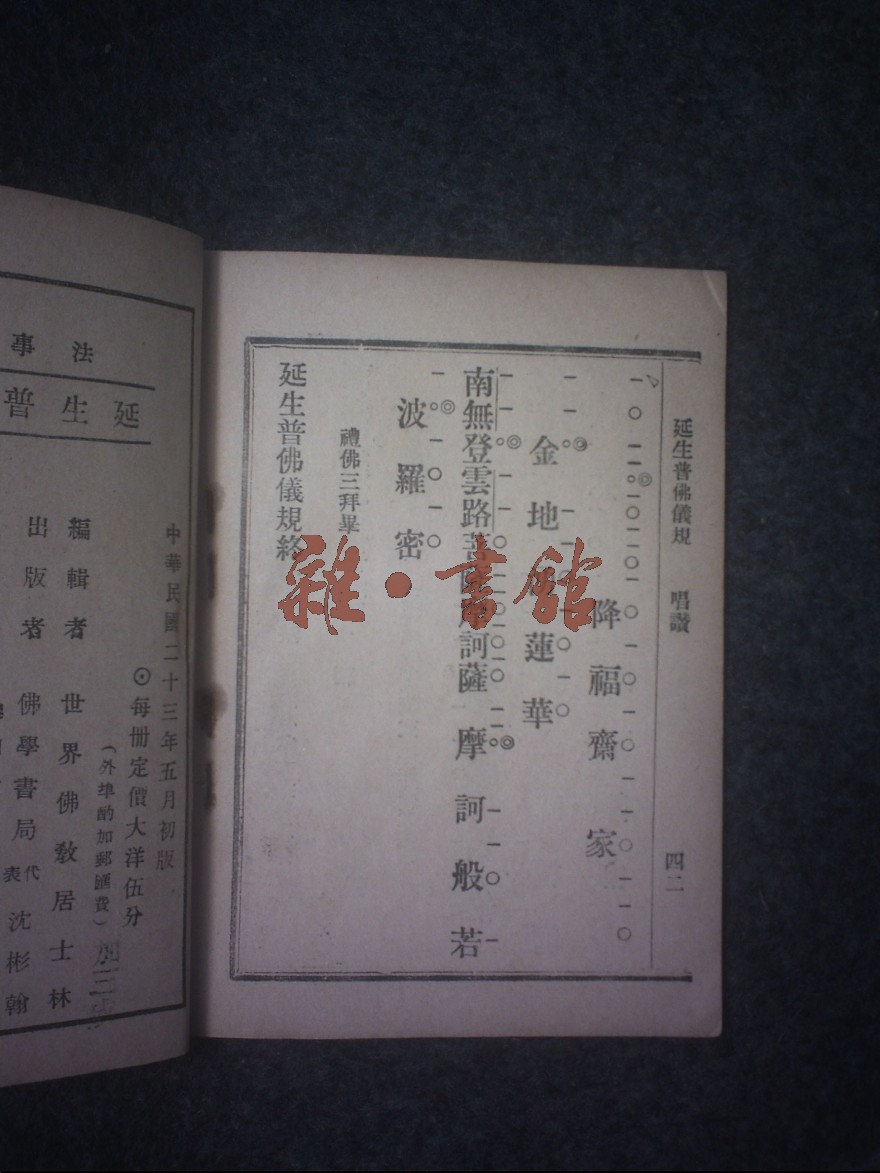 延生普佛儀規　唱讚　四二
降福齋家
金地　蓮華
南無登雲路菩薩摩訶薩　摩訶般若
波羅密
禮佛三拜畢
延生普佛儀規終
雜·書館
中華民國二十三年五月初版
⊙每冊定價大洋伍分
（外埠酌加郵匯費）
編輯者　世界佛教居士林
出版者　佛學書局　代表　沈彬翰
法事
延生普